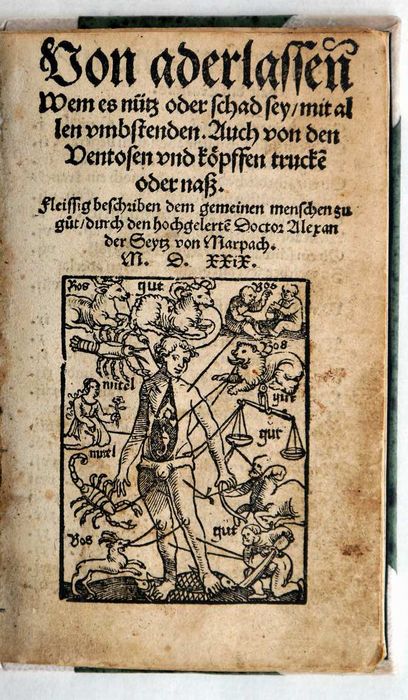 Von aderlassenn
Wem es nütz oder schad sey/mit al
len vmbstenden. Auch von den
Ventosen vnd köpffen truckē
oder naß.
Fleissig beschriben dem gemeinen menschen zu
gůt/durch den hochgelertē Doctor Alexan
der Seytz von Marpach.
M. D. XXIX.
Bos gut Bos
Bos
mitel
gut
gut
mitel
Bos gut